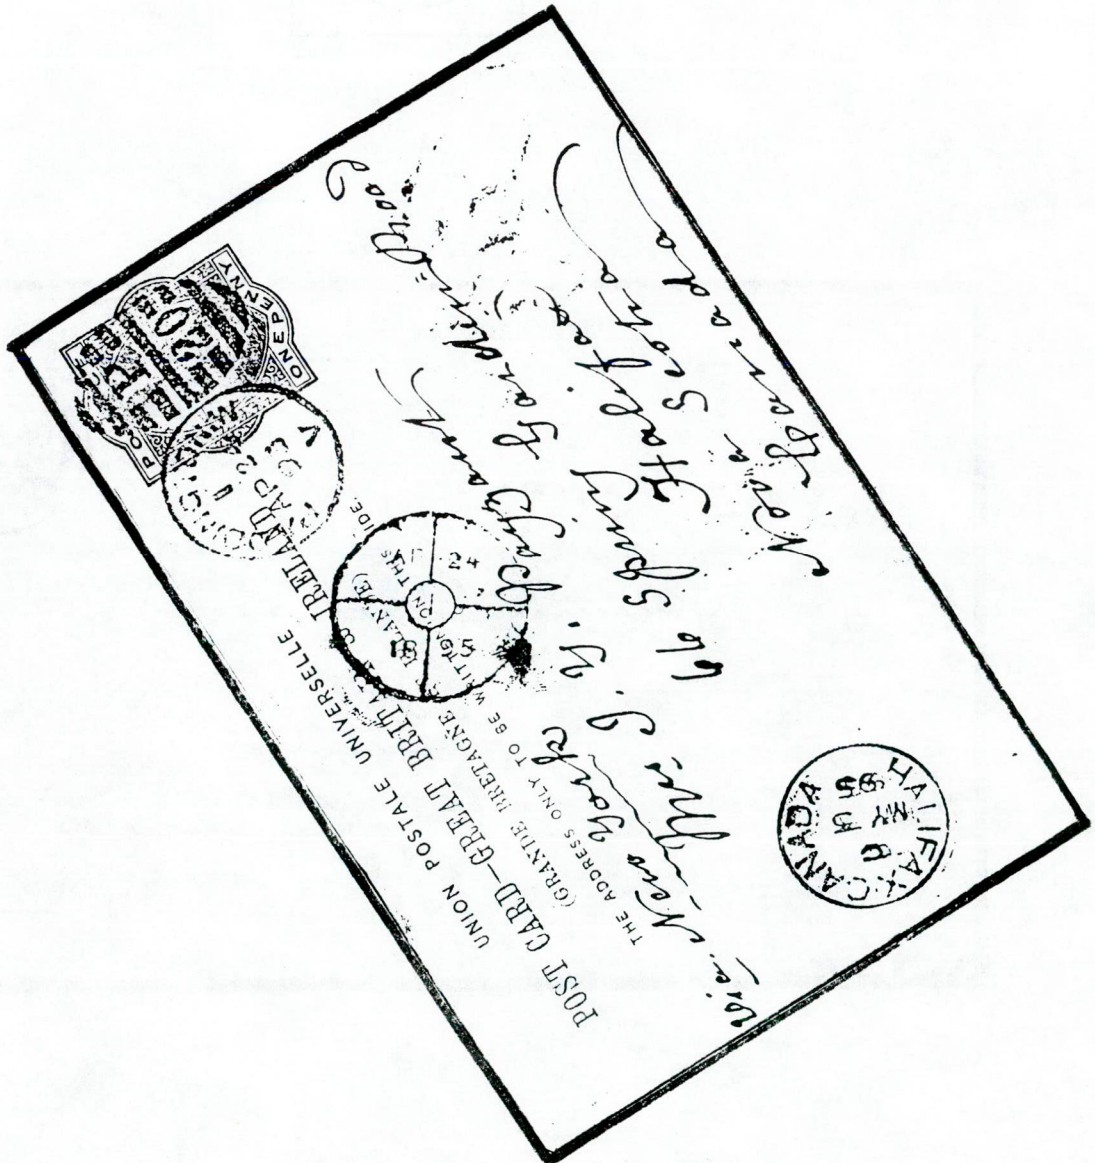 UNION POSTALE UNIVERSELLE
POST CARD–GREAT BRITAIN & IRELAND
(GRANDE BRETAGNE & IRLANDE)
THE ADDRESS ONLY TO BE WRITTEN ON THIS SIDE.
ONE PENNY
AP 2
93
via New York
Mrs J. Y. Payzant
66 Spring Gardin-Road
Halifax
Nova Scotia
Canada
HALIFAX CANADA